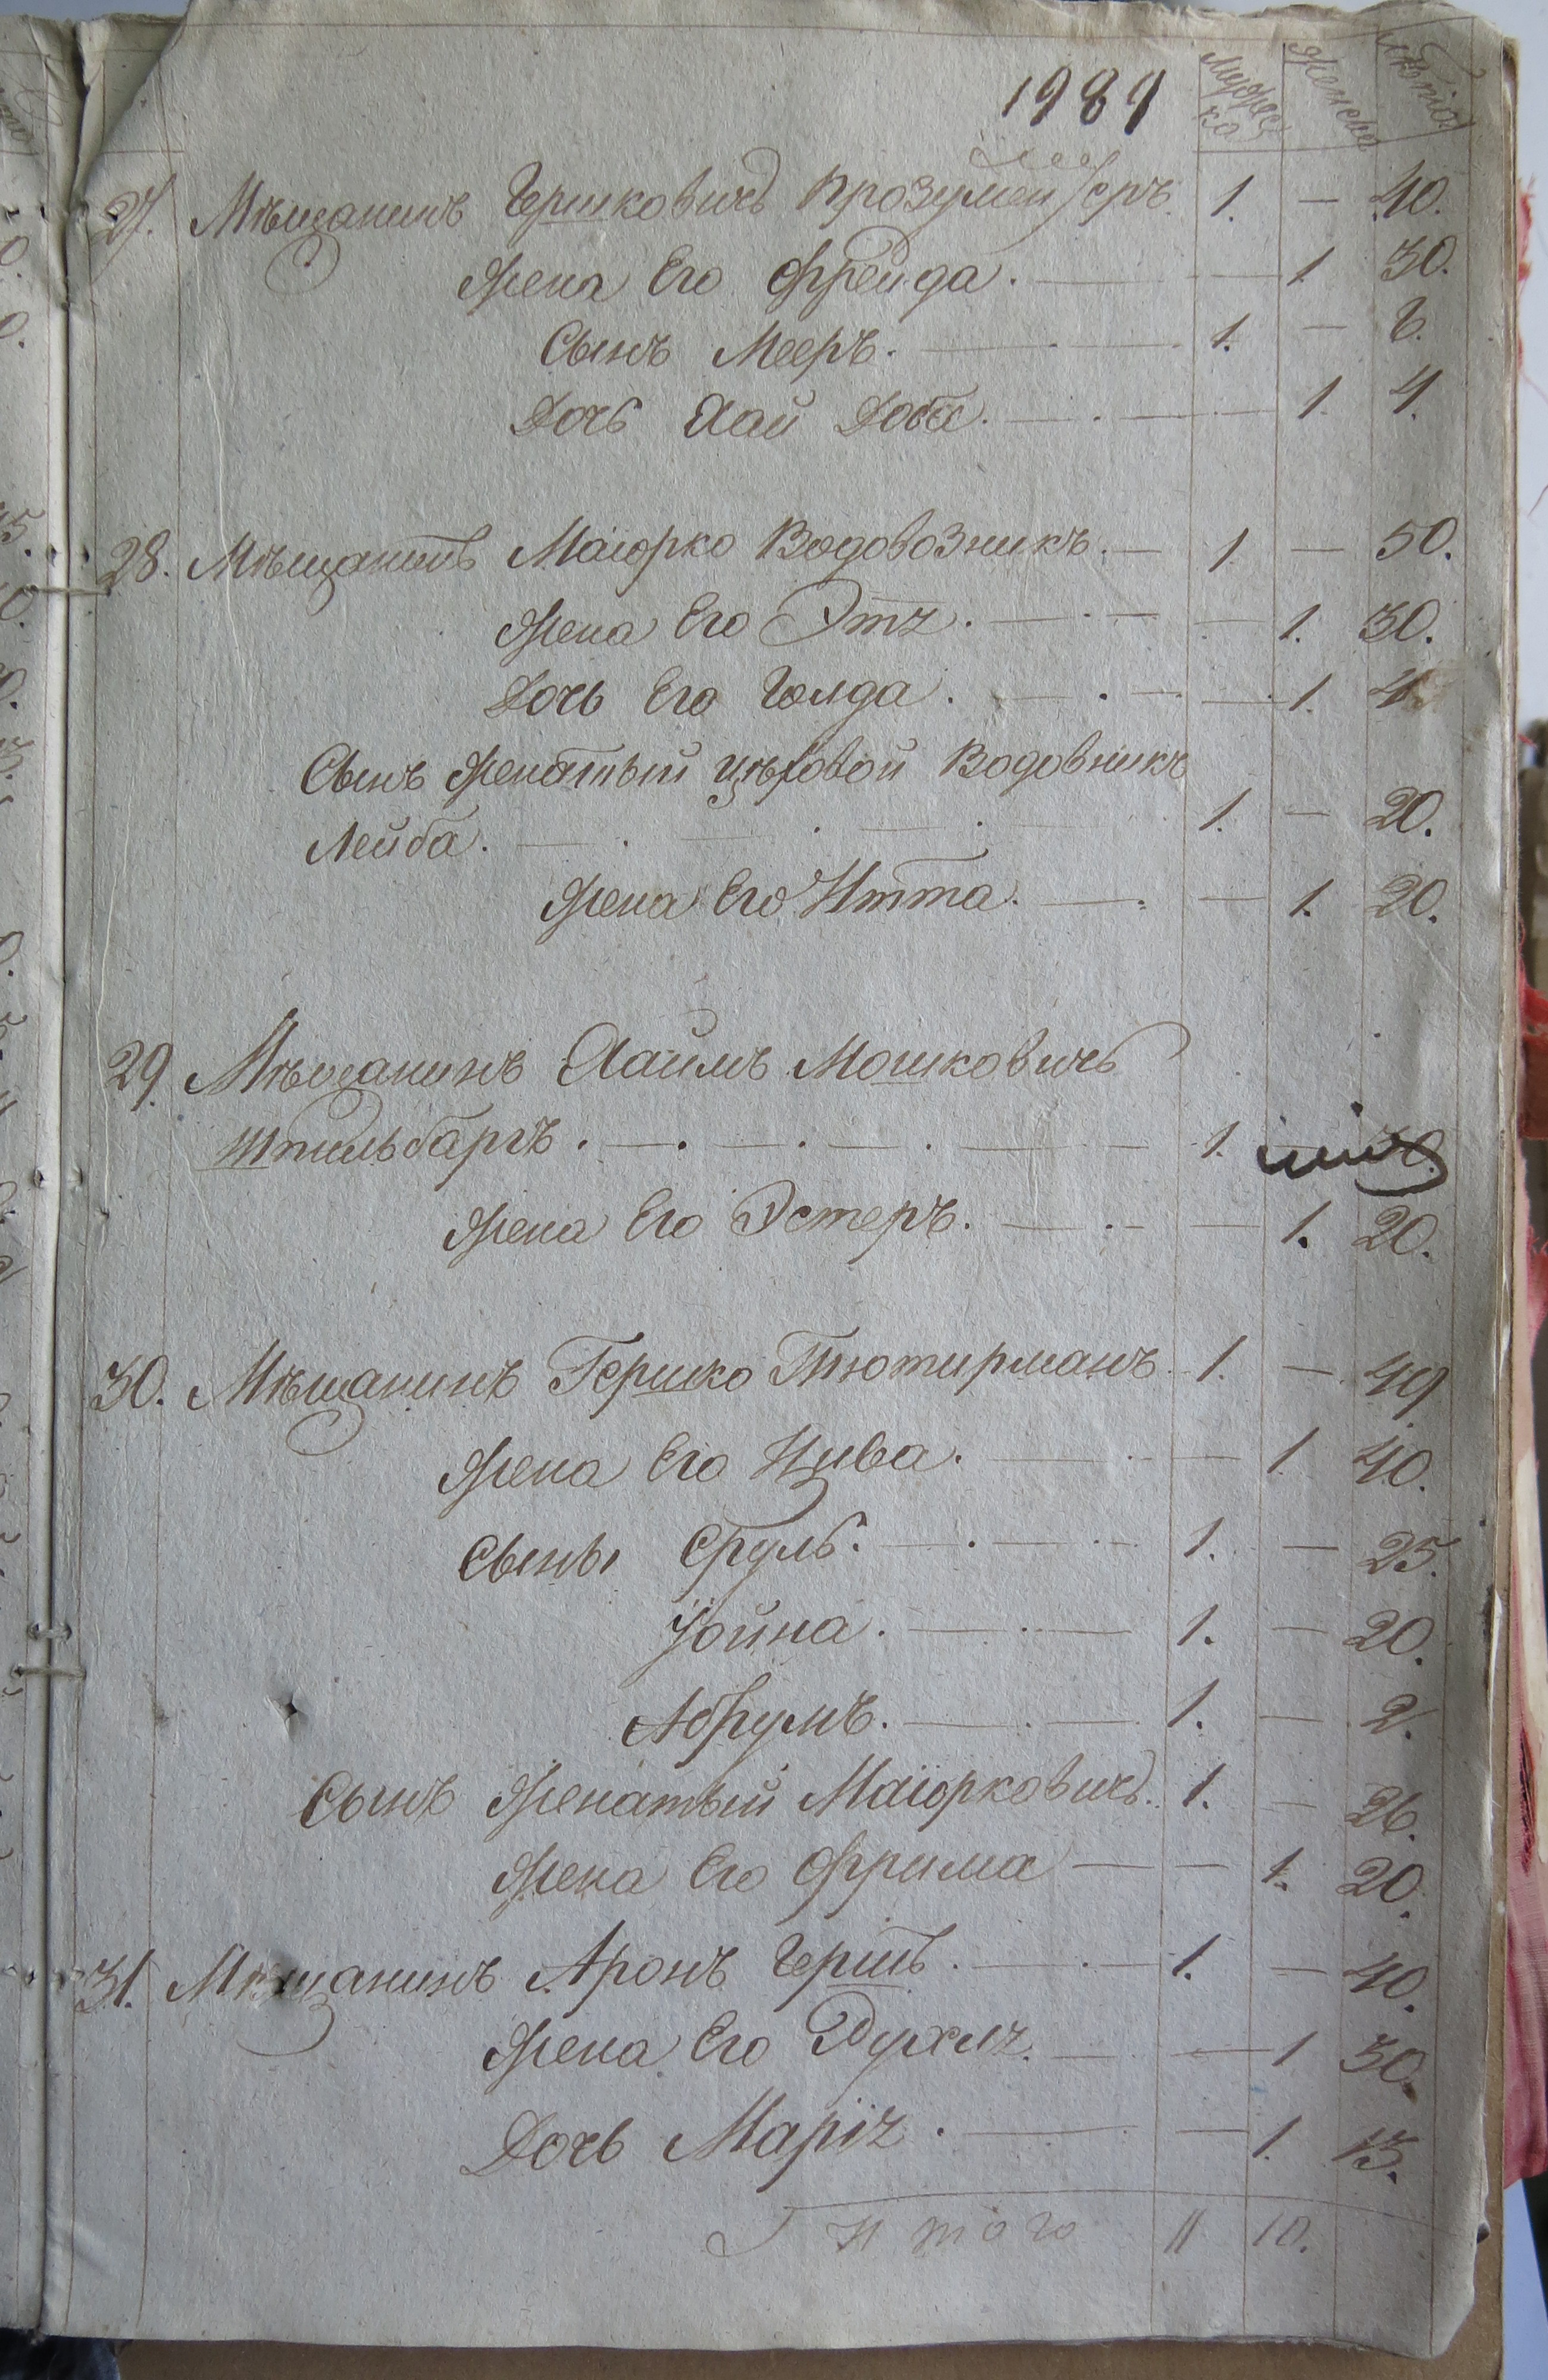 1989
мужеска женска лѣта
27. Мѣщанинъ Гершковичъ Прозумен 1. — 40.
Жена Его Фрейда. — 1. 30.
Сынъ Мееръ. — 1. — 6.
Дочь Хай Доба. — 1. 4.
28. Мѣщанинъ Маіорко Водовозникъ. — 1. — 50.
Жена Его Этя. — 1. 30.
Дочь Его Голда. — 1. 4.
Сынъ Женатый цѣховой Водовникъ
Лейба. — 1. — 20.
Жена Его Итта. — 1. 20.
29. Мѣщанинъ Хаимъ Мошковичъ
Штильбаргъ. — 1.
Жена Его Эстеръ. — 1. 20.
30. Мѣщанинъ Гершко Тютирманъ. 1. — 49
Жена Его Цива. — 1. 40.
Сыны Сруль. — 1. — 25.
Іойна. — 1. — 20.
Абрумъ. — 1. — 2.
Сынъ Женатый Маіорковичъ. 1. — 26.
Жена Его Фрима — 1. 20.
31. Мѣщанинъ Аронъ Гершъ. — 1. — 40.
Жена Его Рухля. — 1 30.
Дочь Марія. — 1. 13.
Итого 11 10.